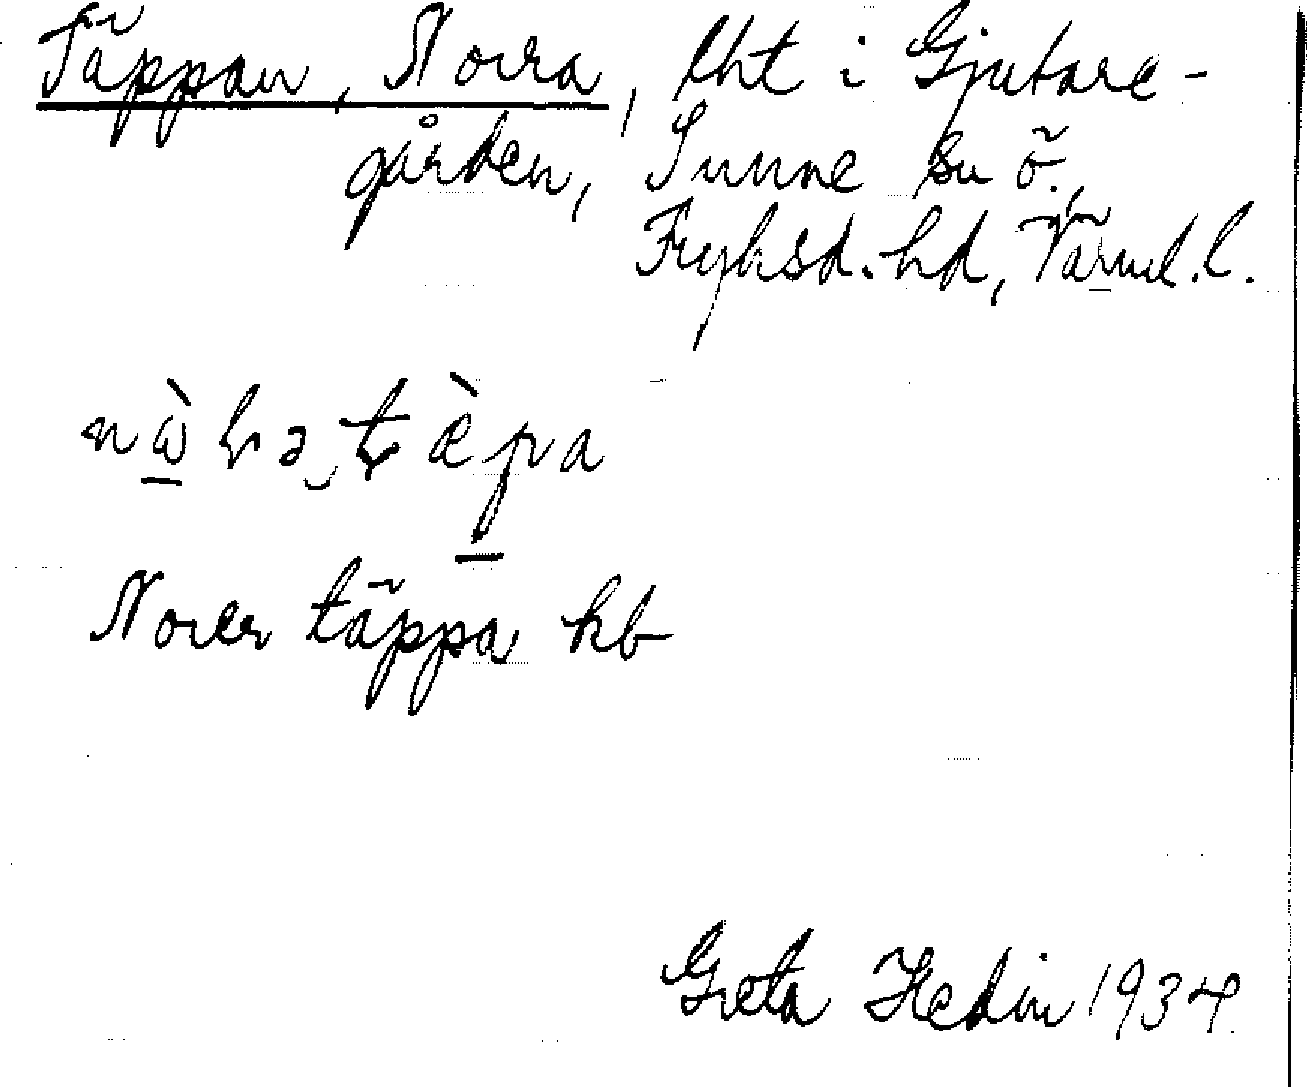 Täppan, Norra, lht i Gjutare-
gården, Sunne su ö.,
Fryksd. hd, Värml. l.
Norer täppa kb
Greta Hedin 1934.